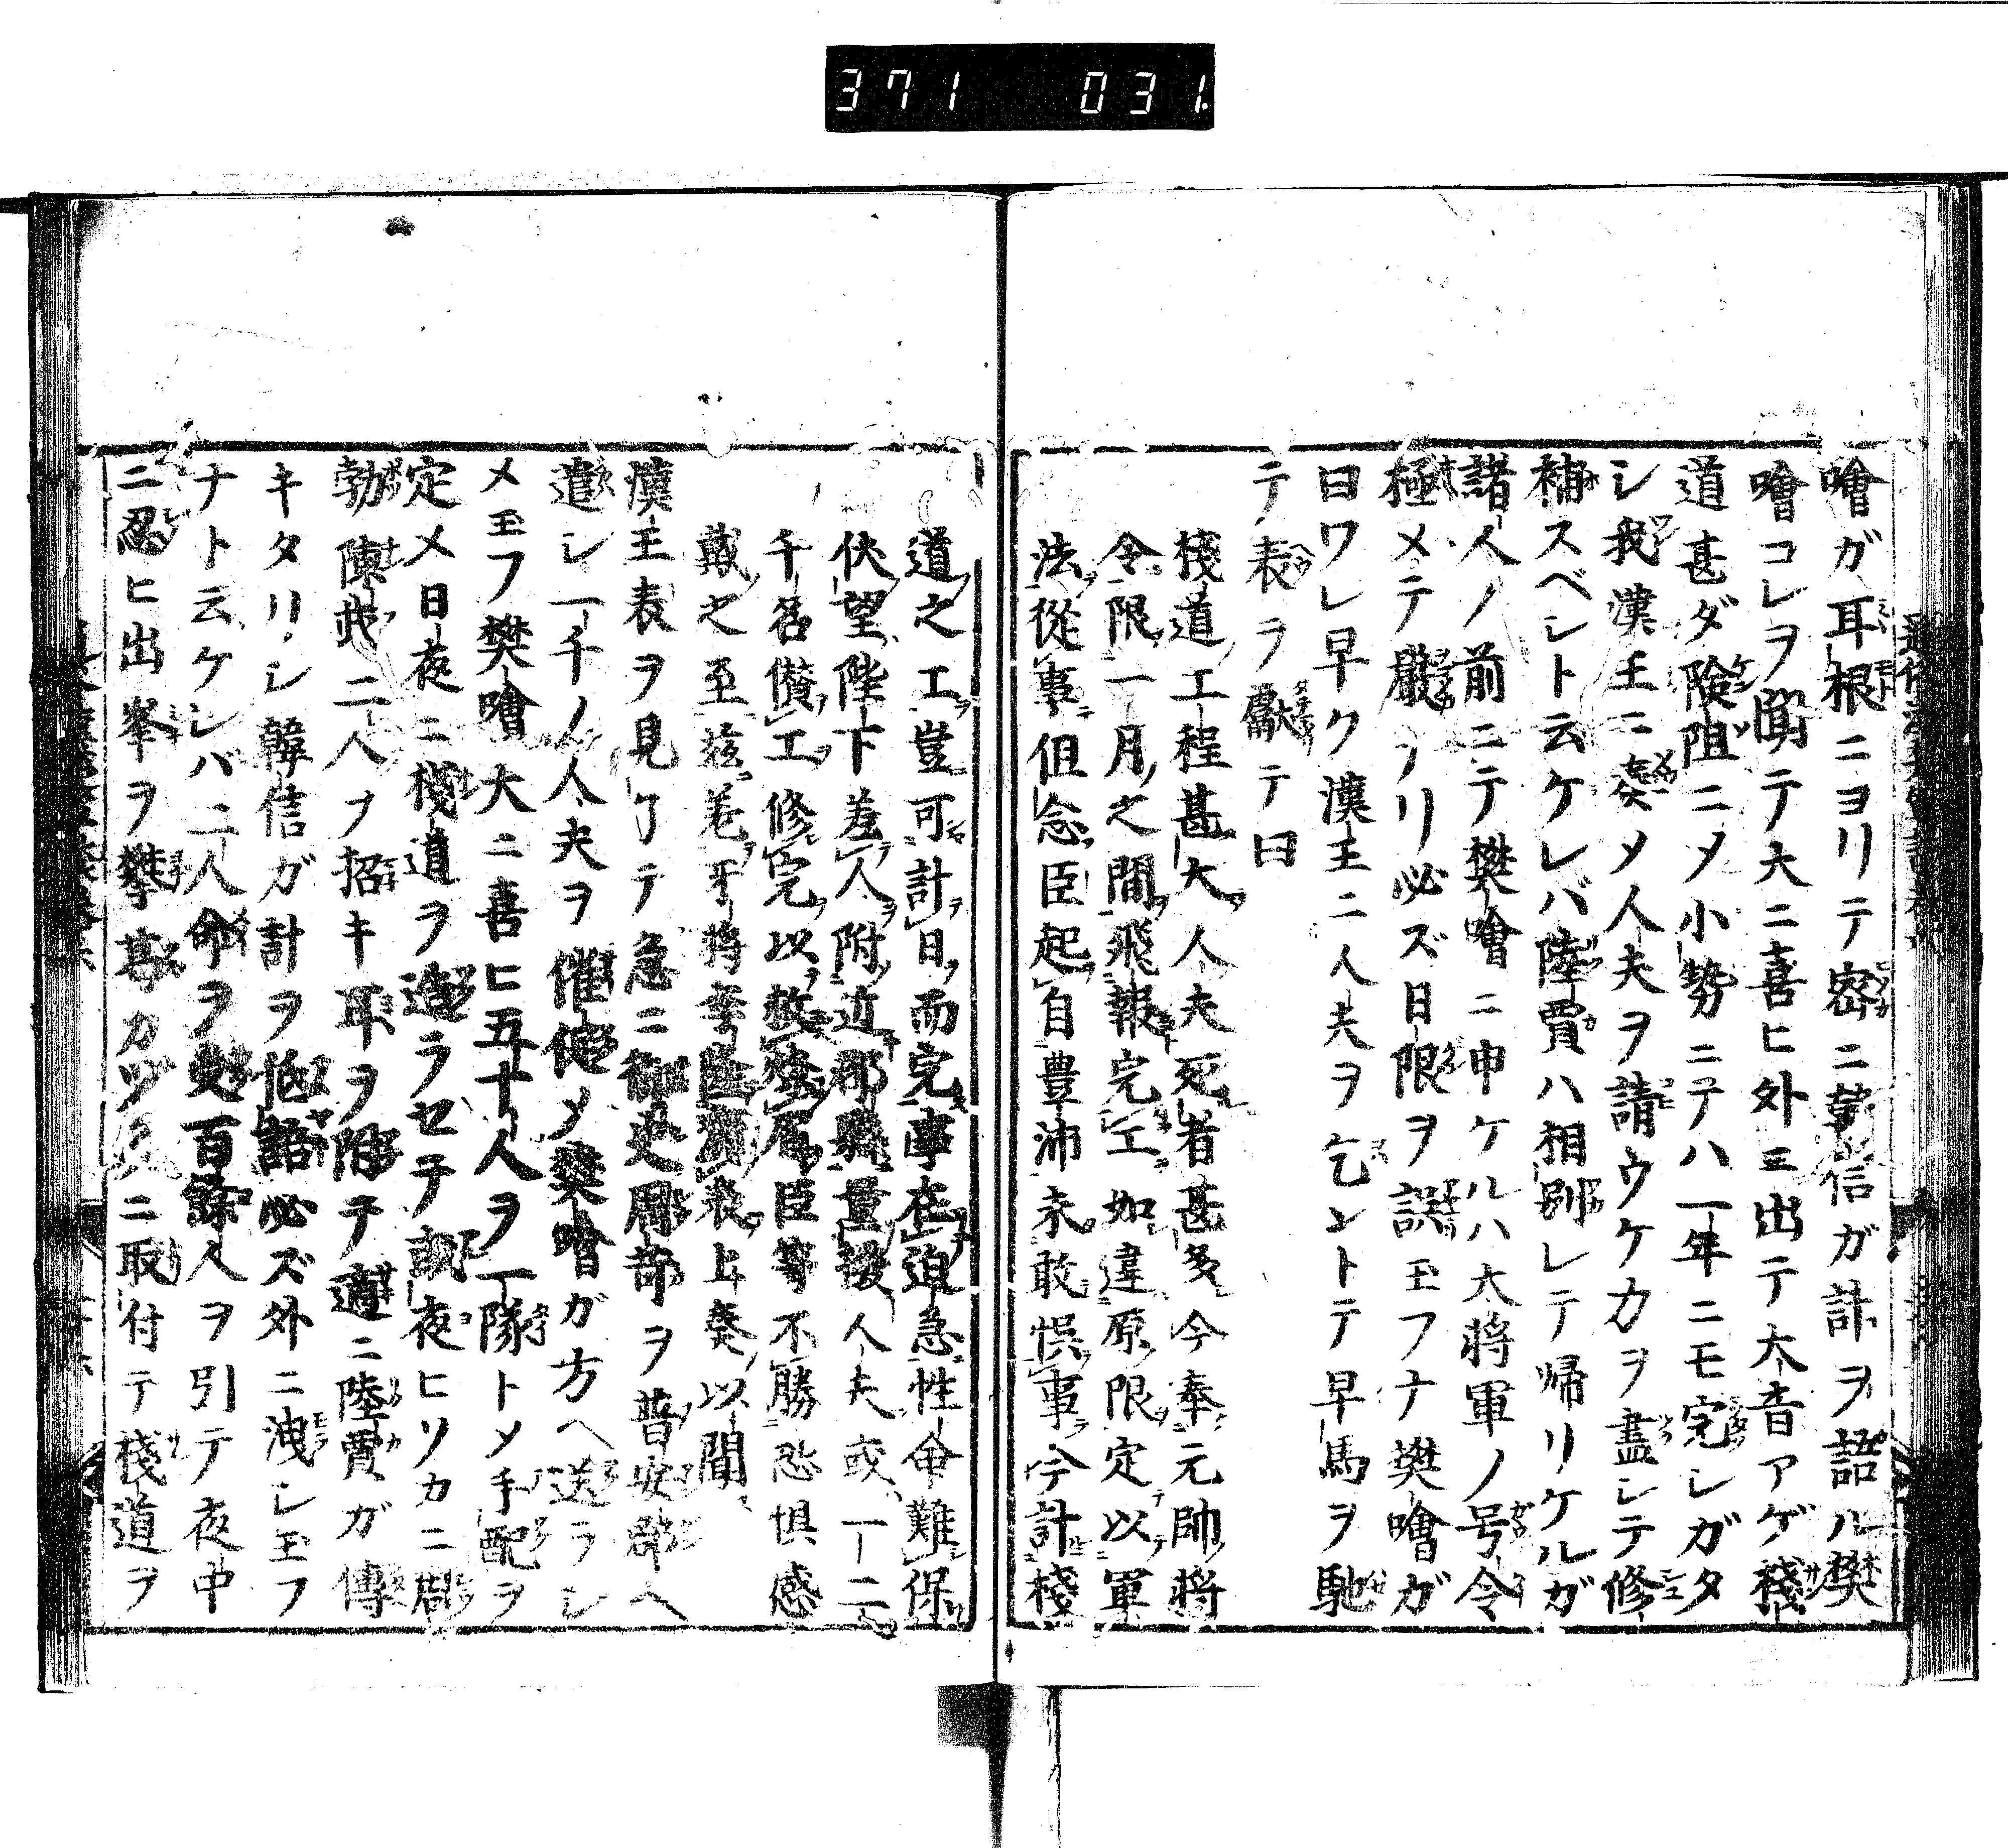 371 031.
噲ガ耳根ニヨリテ密ニ韓信ガ計ヲ語ル樊
噲コレヲ聞テ大ニ喜ヒ外ニ出テ大音アゲ棧
道甚ダ険阻ニメ小勢ニテハ一年ニモ完シガタ
シ我漢王ニ奏メ人夫ヲ請ウケ力ヲ盡シテ修
補スベシト云ケレバ陸賈ハ相別レテ帰リケルガ
諸人ノ前ニテ樊噲ニ申ケルハ大将軍ノ号令
極メテ嚴ナリ必ズ日限ヲ誤玉フナ樊噲ガ
曰ワレ早ク漢王ニ人夫ヲ乞ントテ早馬ヲ馳
テ表ヲ獻テ曰
棧道工程甚大人夫死者甚多今奉元帥將
令限一月之間飛報完工如違原限定以軍
法從事但念臣起自豊沛未敢悞事今計棧
道之工豈可計日而完事在迫急性命難保
伏望陛下差人附近郡縣量撥人夫或一二
千名儧工修完以救殘厲臣等不勝恐惧感
戴之至茲差牙將 表上奏以聞
漢王表ヲ見了テ急ニ御史周苛ヲ普安郡ヘ
遣シ一千ノ人夫ヲ催促メ樊噲ガ方ヘ送ラシ
メ玉フ樊噲大ニ喜ヒ五十人ヲ一隊トメ手配ヲ
定メ日夜ニ棧道ヲ造ラセテ或夜ヒソカニ周
勃陳武二人ヲ招キ耳ヲ附テ適ニ陸賈ガ傳
キタリシ韓信ガ計ヲ低語必ズ外ニ洩シ玉フ
ナト云ケレバ二人命ヲ受百餘人ヲ引テ夜中
ニ忍ヒ出峯ヲ攀葛カヅラニ取付テ棧道ヲ